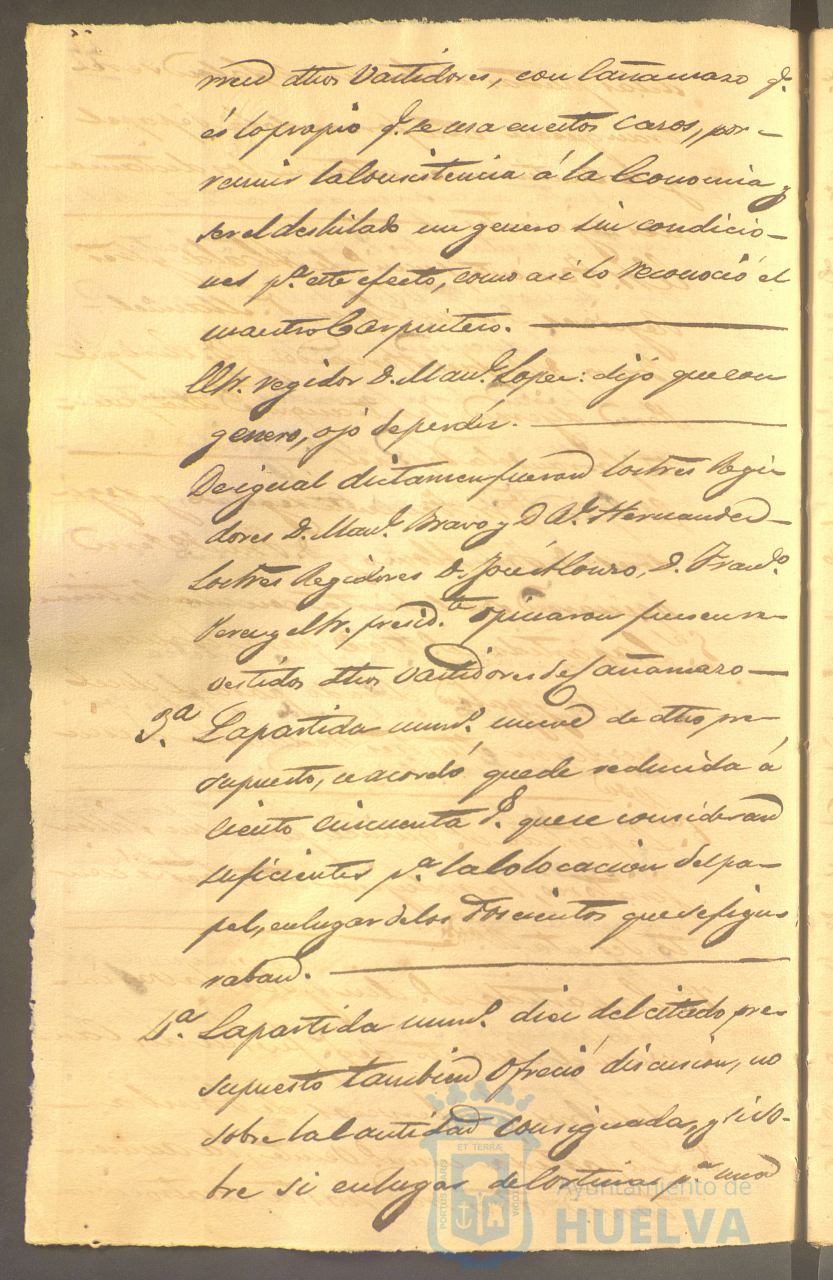 rren dhos Vastidores, con Cañamazo q.e
és lo propio q.e se usa en estos casos, por
reunir la Consistencia á la Economia y
ser el deshilado un genero sin condicio-
nes p.a este efecto, como asi lo reconoció el
maestro Carpintero.
El Sr. regidor D. Man.l Lopez: dijo que con
genero,
De igual dictamen fueron los tres Regi-
dores D. Man.l Bravo y D. A.o Hernandez
Los tres Regidores D. José Alonzo, D. Fran.co
Perez y el Sr. presid.te opinaron fuesen re-
vestidos dhos Vastidores de Cañamazo
3.a La partida num.o nueve de dho pre-
supuesto, se acordó quede reducida á
Ciento Cincuenta r.s que se consideran
suficientes p.a la Colocacion del pa-
pel, en lugar de los Doscientos que se figu-
raban.
4.a La partida num.o diez del citado pre-
supuesto tambien Ofreció discusion, no
sobre la Cantidad Consignada, y si so-
bre si en lugar de Cortinas p.a una
PORTUS MARIS
ET TERRÆ
CUSTODIA
Ayuntamiento de
HUELVA